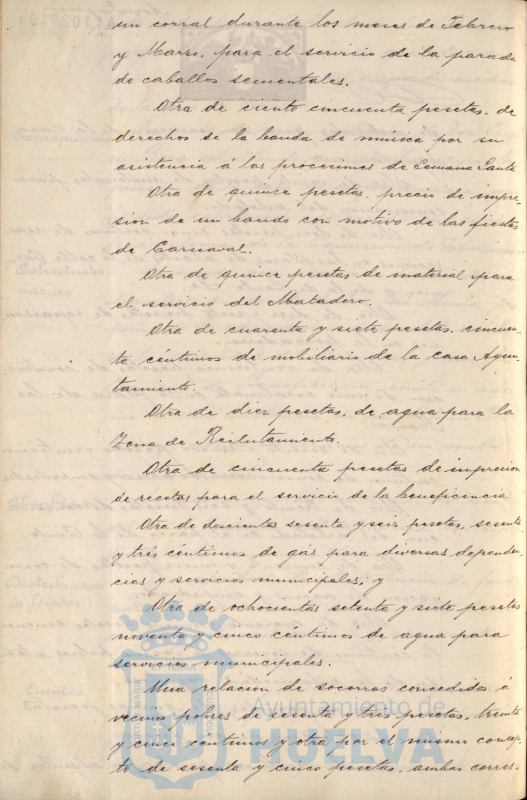 un corral durante los meses de Febrero
y Marzo, para el servicio de la parada
de caballos sementales.
Otra de ciento cincuenta pesetas, de
derechos de la banda de música por su
asistencia á las procesiones de Semana Santa
Otra de quince pesetas, precio de impre-
sion de un bando con motivo de las fiestas
de Carnaval.
Otra de quince pesetas de material para
el servicio del Matadero.
Otra de cuarenta y siete pesetas, cincuen-
ta céntimos de mobiliario de la casa Ayun-
tamiento.
Otra de diez pesetas, de agua para la
Zona de Reclutamiento.
Otra de cincuenta pesetas de impresion
de recetas para el servicio de la beneficencia
Otra de doscientas sesenta y seis pesetas, sesenta
y trés céntimos de gas para diversas dependen-
cias y servicios municipales, y
Otra de ochocientas setenta y siete pesetas
noventa y cinco céntimos de agua para
servicios municipales.
Una relacion de socorros concedidos á
vecinos pobres de sesenta y tres pesetas, treinta
y cinco centimos y otra por el mismo concep-
to de sesenta y cinco pesetas, ambas corres-
Ayuntamiento de
HUELVA